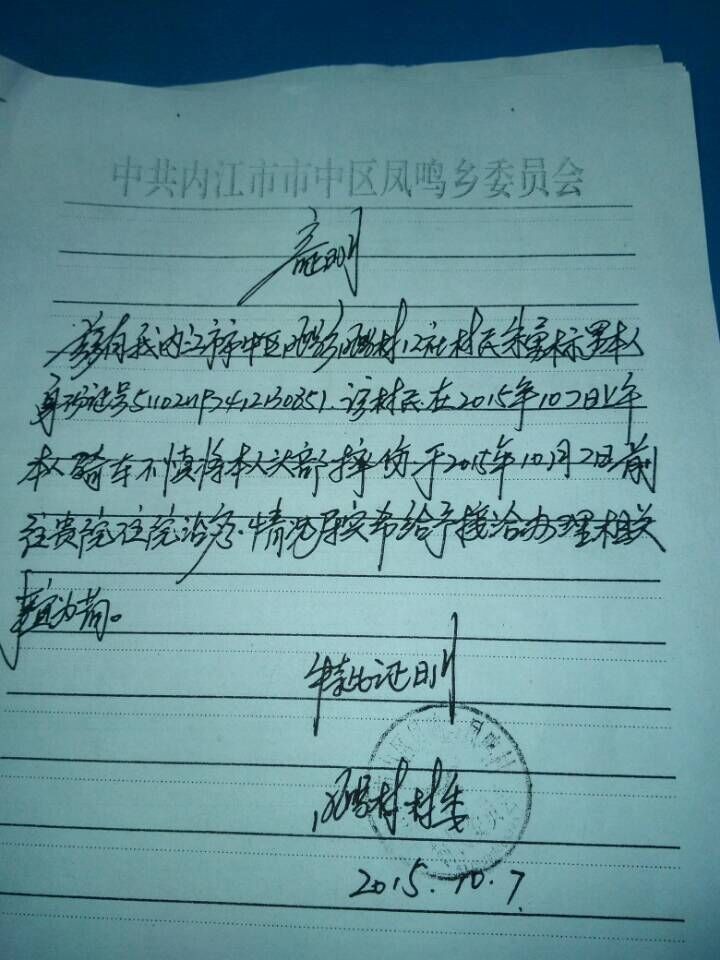 中共内江市市中区凤鸣乡委员会
证明
兹有我内江市市中区凤鸣乡凤鸣村12社村民朱勇标男本人
身份证号511021197412130851.该村民在2015年10月2日上午
本人骑车不慎将本人头部摔伤于2015年10月2日前
往贵院住院治疗.情况属实希给予接洽办理相关
事宜为荷。
特此证明
凤鸣村村委
2015.10.7